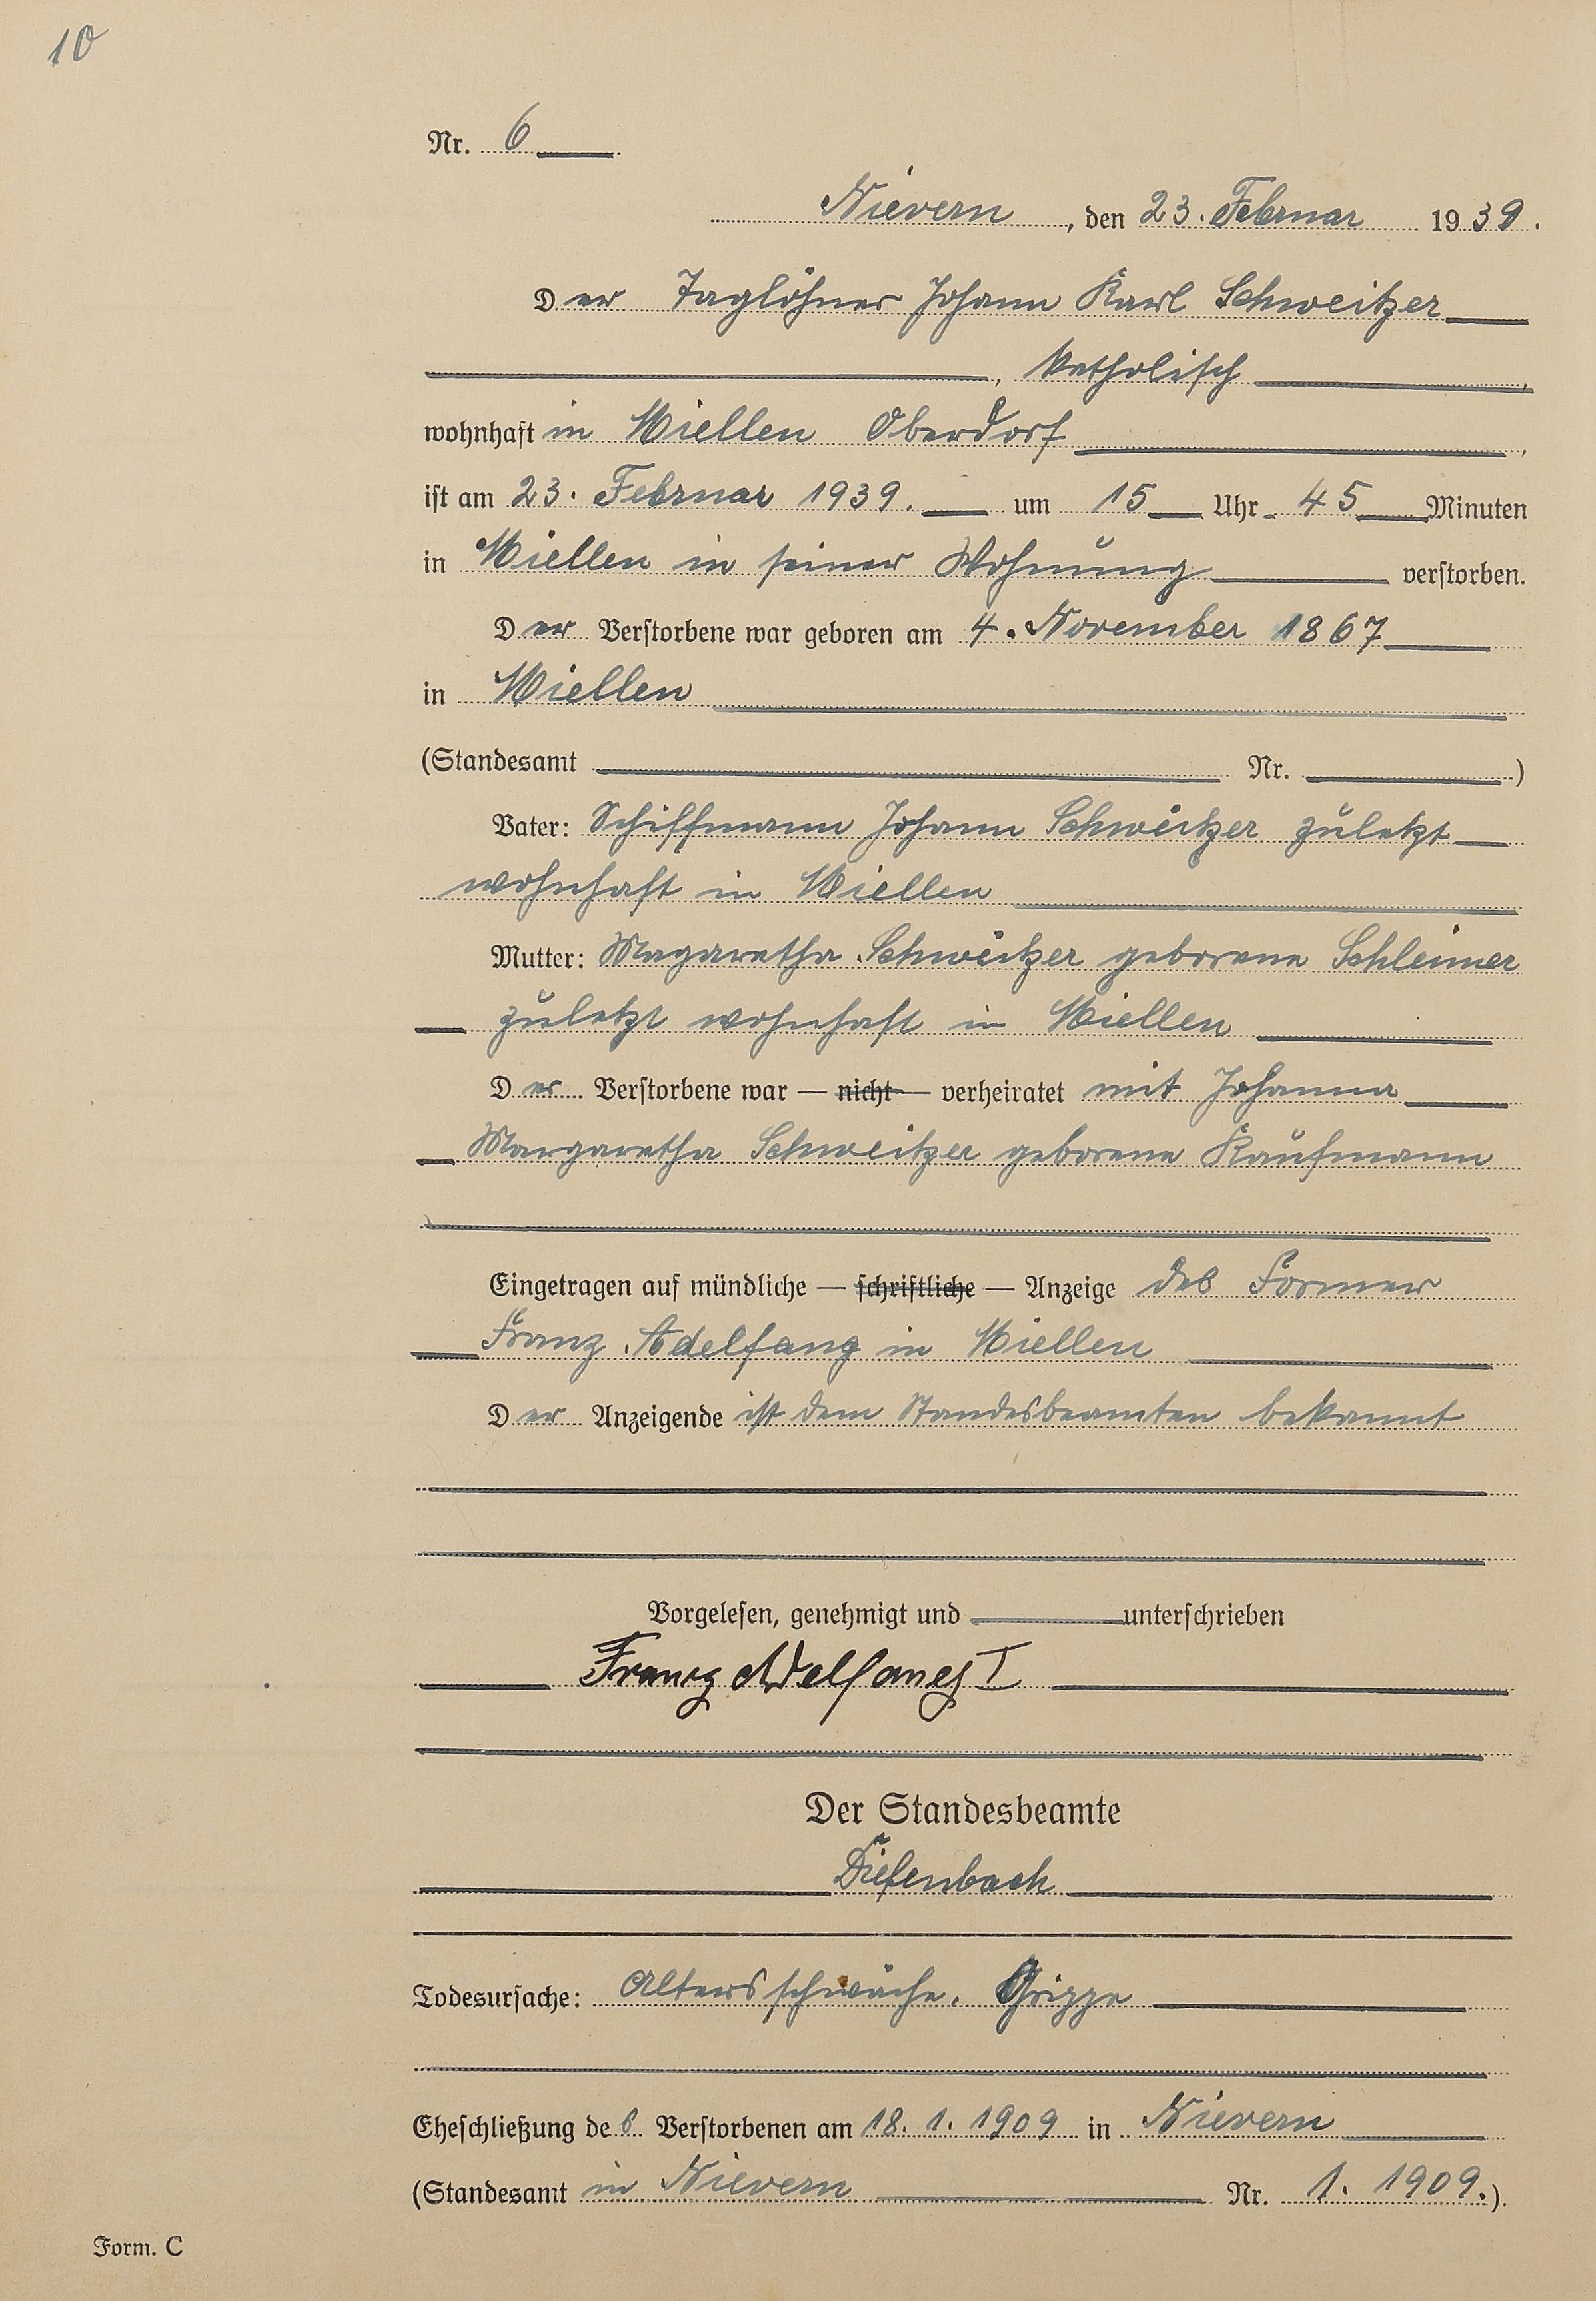 10
Nr. 6
Nievern, den 23. Februar 1939.
Der Taglöhner Johann Karl Schweitzer
, katholisch,
wohnhaft in Miellen Oberdorf,
ist am 23. Februar 1939. um 15 Uhr 45 Minuten
in Miellen in seiner Wohnung verstorben.
Der Verstorbene war geboren am 4. November 1867
in Miellen
(Standesamt Nr. )
Vater: Schiffmann Johann Schweitzer zuletzt
wohnhaft in Miellen
Mutter: Magaretha Schweitzer geborene Schleimer
zuletzt wohnhaft in Miellen
Der Verstorbene war — nicht — verheiratet mit Johanna
Margaretha Schweitzer geborene Kaufmann
Eingetragen auf mündliche — schriftliche — Anzeige des Former
Franz Adelfang in Miellen
Der Anzeigende ist dem Standesbeamten bekannt
Vorgelesen, genehmigt und unterschrieben
Franz Adelfang I
Der Standesbeamte
Diefenbach
Todesursache: Altersschwäche. Grippe
Eheschließung des Verstorbenen am 18. 1. 1909 in Nievern
(Standesamt in Nievern Nr. 1. 1909.).
Form. C